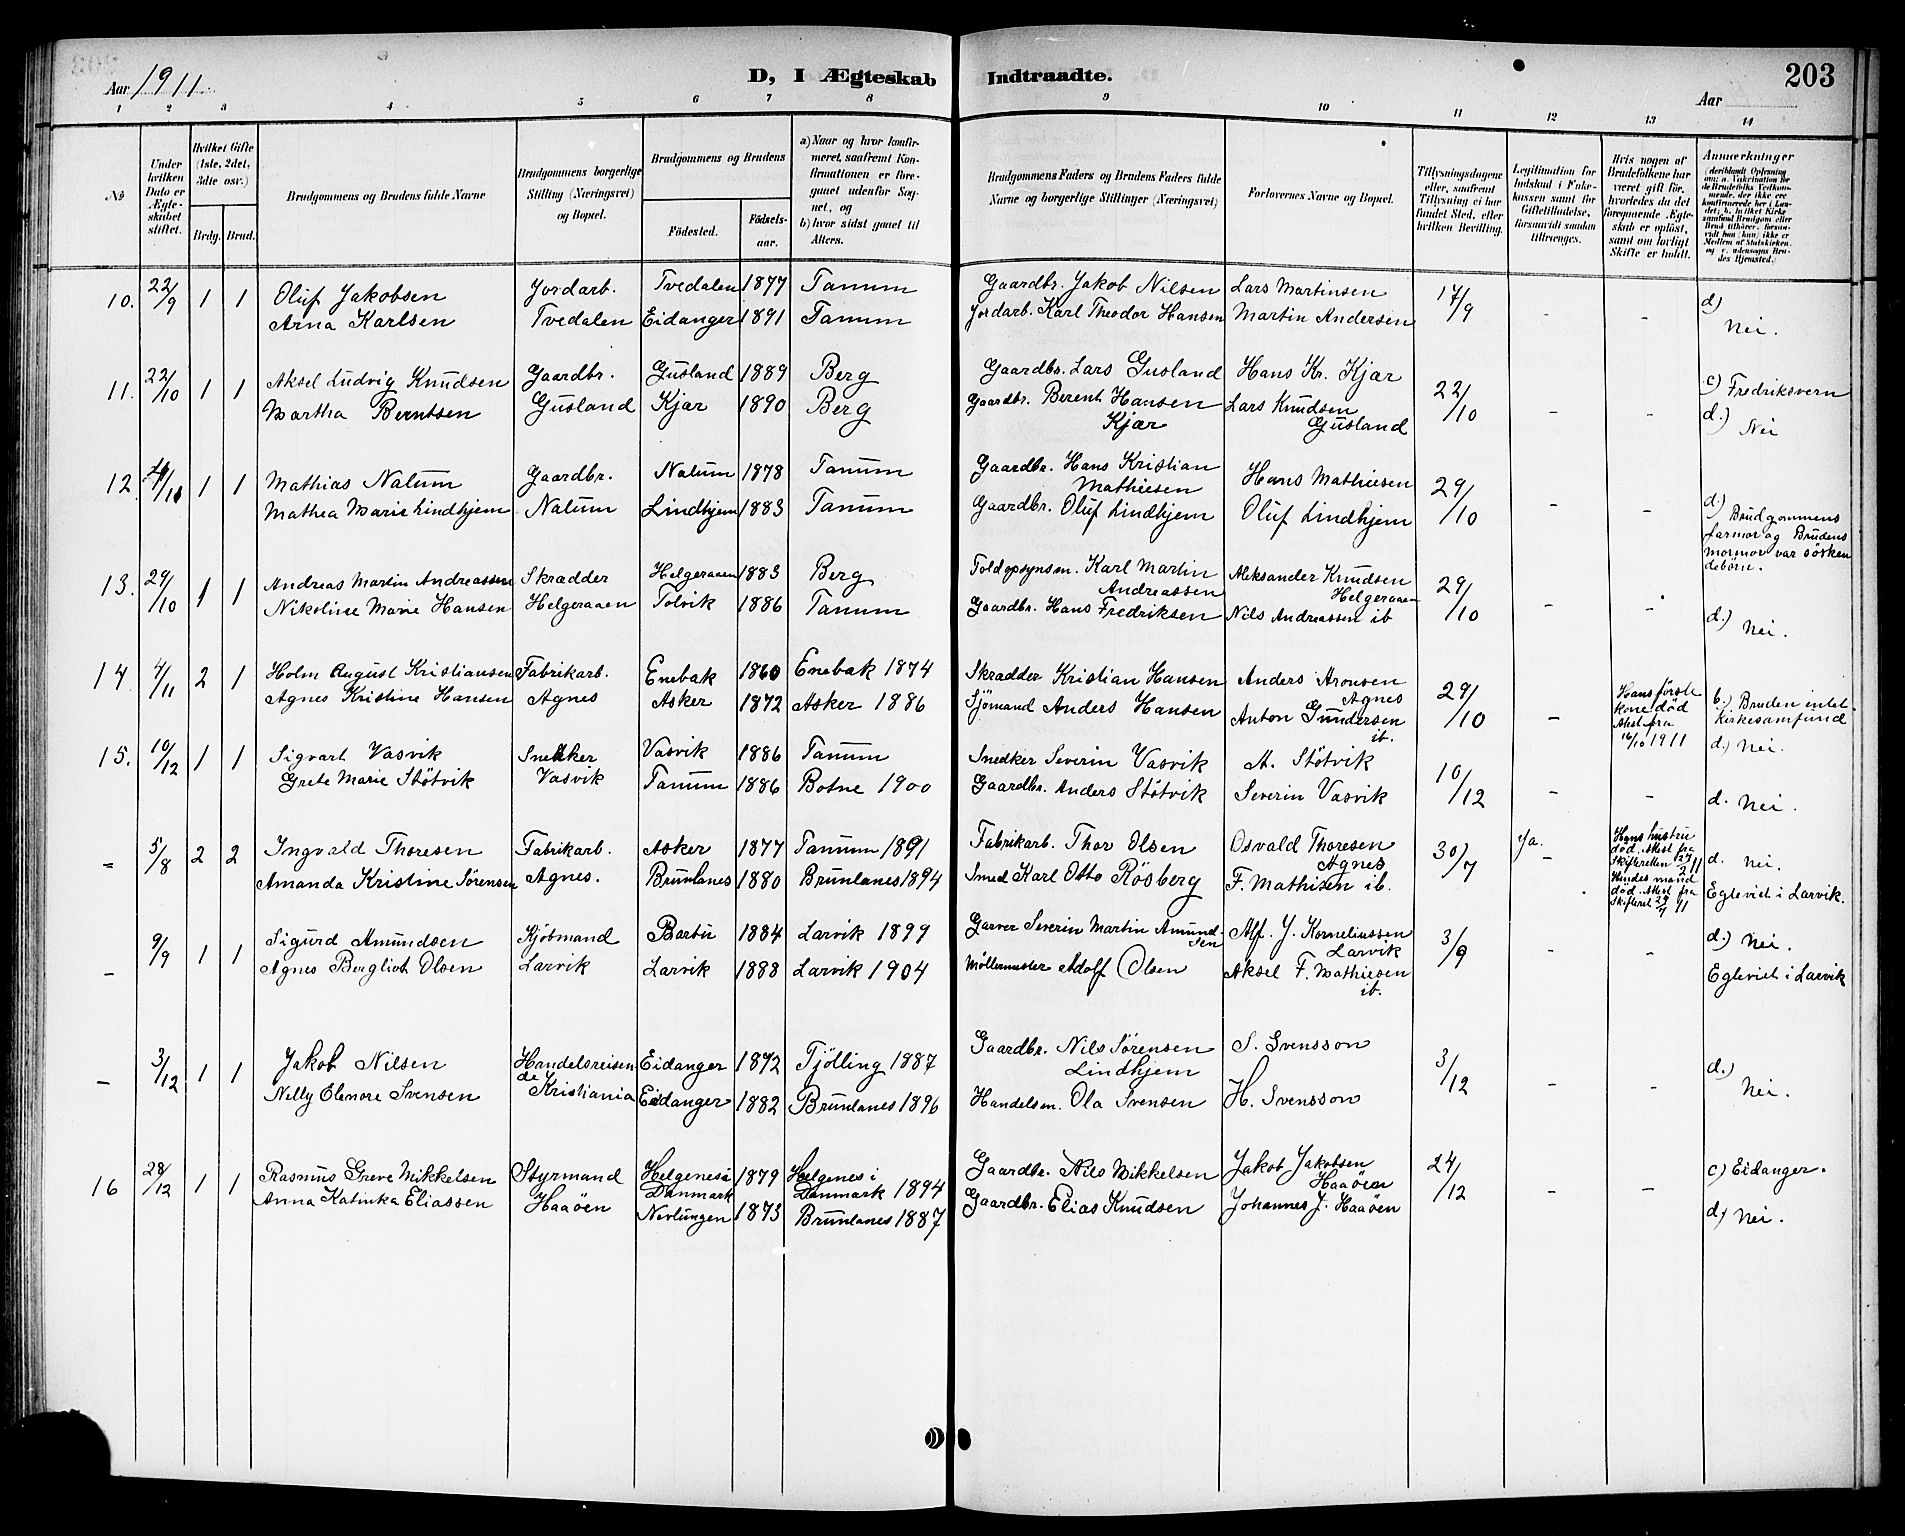 Aar 1911.
D, I Ægteskab Indtraadte.
203
Aar
1 2 3 4 5 6 7 8 9 10 11 12 13 14
No
Under hvilken Dato er Ægteskabet stiftet.
Hvilket Gifte (1ste, 2det, 3die osv.)
Brdg. Brud.
Brudgommens og Brudens fulde Navne
Brudgommens borgerlige Stilling (Næringsvei) og Bopæl.
Brudgommens og Brudens
Fødested.
Fødselsaar.
a) Naar og hvor konfirmeret, saafremt Konfirmationen er foregaaet udenfor Sognet, og
b) hvor sidst gaaet til Alters.
Brudgommens Faders og Brudens Faders fulde Navne og borgerlige Stillinger (Næringsvei)
Forlovernes Navne og Bopæl.
Tillysningsdagene eller, saafremt Tillysning ei har fundet Sted, efter hvilken Bevilling.
Legitimation for Indskud i Enkekassen samt for Giftetilladelse, forsaavidt saadan tiltrænges.
Hvis nogen af Brudefolkene har været gift før, hvorledes da det foregaaende Ægteskab er opløst, samt om lovligt Skifte er holdt.
Anmærkninger
10. 22/9 1 1 Oluf Jakobsen Jordarb. Tvedalen 1877 Tanum Gaardbr. Jakob Nilsen Lars Martinsen 17/9 - - d)
Arna Karlsen Tvedalen Eidanger 1891 Tanum Jordarb. Karl Theodor Hansen Martin Andersen Nei.
11. 22/10 1 1 Aksel Ludvig Knudsen Gaardbr. Gusland 1889 Berg Gaardbr. Lars Gusland Hans Kr. Kjær 22/10 - - c) Fredriksvern
Martha Berntsen Gusland Kjær 1890 Berg Gaardbr. Berent Hansen Kjær Lars Knudsen Gusland d.) Nei
12. /10 1 1 Mathias Nalum Gaardbr. Nalum 1878 Tanum Gaardbr. Hans Kristian Mathiesen Hans Mathiesen 29/10 - - d) Brudgommens
Mathea Marie Lindhjem Nalum Lindhjem 1883 Tanum Gaardbr. Oluf Lindhjem Oluf Lindhjem farmor og Brudens
mormor var sösken
debörn.
13. 29/10 1 1 Andreas Martin Andreassen Skradder Helgeraaen 1883 Berg Toldopsynsm. Karl Martin Andreassen Aleksander Knudsen Helgeraaen 29/10 - -
Nikoline Marie Hansen Helgeraaen Tolvik 1886 Tanum Gaardbr. Hans Fredriksen Nils Andreassen ib d.) Nei.
14 4/11 2 1 Holm August Kristiansen Fabrikarb. Enebak 1860 Enebak 1874 Skradder Kristian Hansen Anders Aronsen Agnes 29/10 - Hans förste kone död Atest fra 16/10 1911 b.) Bruden intet Kirkesamfund
Agnes Kristine Hansen Agnes Asker 1872 Asker 1886 Sjömand Anders Hansen Anton Gundersen ib. d.) Nei.
15. 10/12 1 1 Sigvart Vasvik Snekker Vasvik 1886 Tanum Snedker Severin Vasvik A. Stötvik 10/12 - -
Grete Marie Stötvik Vasvik Tanum 1886 Botne 1900 Gaardbr. Anders Stötvik Severin Vasvik d. Nei.
- 5/8 2 2 Ingvald Thoresen Fabrikarb. Asker 1877 Tanum 1891 Fabrikarb. Thor Olsen Osvald Thoresen Agnes 30/7 Ja. - Hans hustru död. Atest fra Skifteretten 27/2 11 d. Nei.
Amanda Kristine Sørensen Agnes. Brunlanes 1880 Brunlanes 1894 Smed Karl Otto Rösberg F. Mathisen ib. Hindes mand död. Atest fra Skifteret 29/7 11 Egleviet i Larvik.
- 9/9 1 1 Sigurd Amundsen Kjöbmand Barbu 1884 Larvik 1899 Garver Severin Martin Amundsen Alf. J. Korneliussen Larvik 3/9 - - d.) Nei.
Agnes Bergliot Olsen Larvik Larvik 1888 Larvik 1904 Möllermester Adolf Olsen Aksel F. Mathiesen ib. Egleviet i Larvik
- 3/12 1 1 Jakob Nilsen Handelsreisende Eidanger 1872 Tjölling 1887 Gaardbr. Nils Sørensen Lindhjem S. Svensson 3/12 - - d.)
Nelly Elenore Svensen Kristiania Eidanger 1882 Brunlanes 1896 Handelsm. Ola Svensen H. Svensson Nei.
16 28/12 1 1 Rasmus Greve Mikkelsen Styrmand Helgenes i Danmark 1879 Helgenes i Danmark 1894 Gaardbr. Nils Mikkelsen Jakob Jakobsen Haaöen 24/12 - - c) Eidanger.
Anna Katinka Eliassen Haaöen Nevlungen 1873 Brunlanes 1887 Gaardbr. Elias Knudsen Johannes J. Haaöen d) Nei.